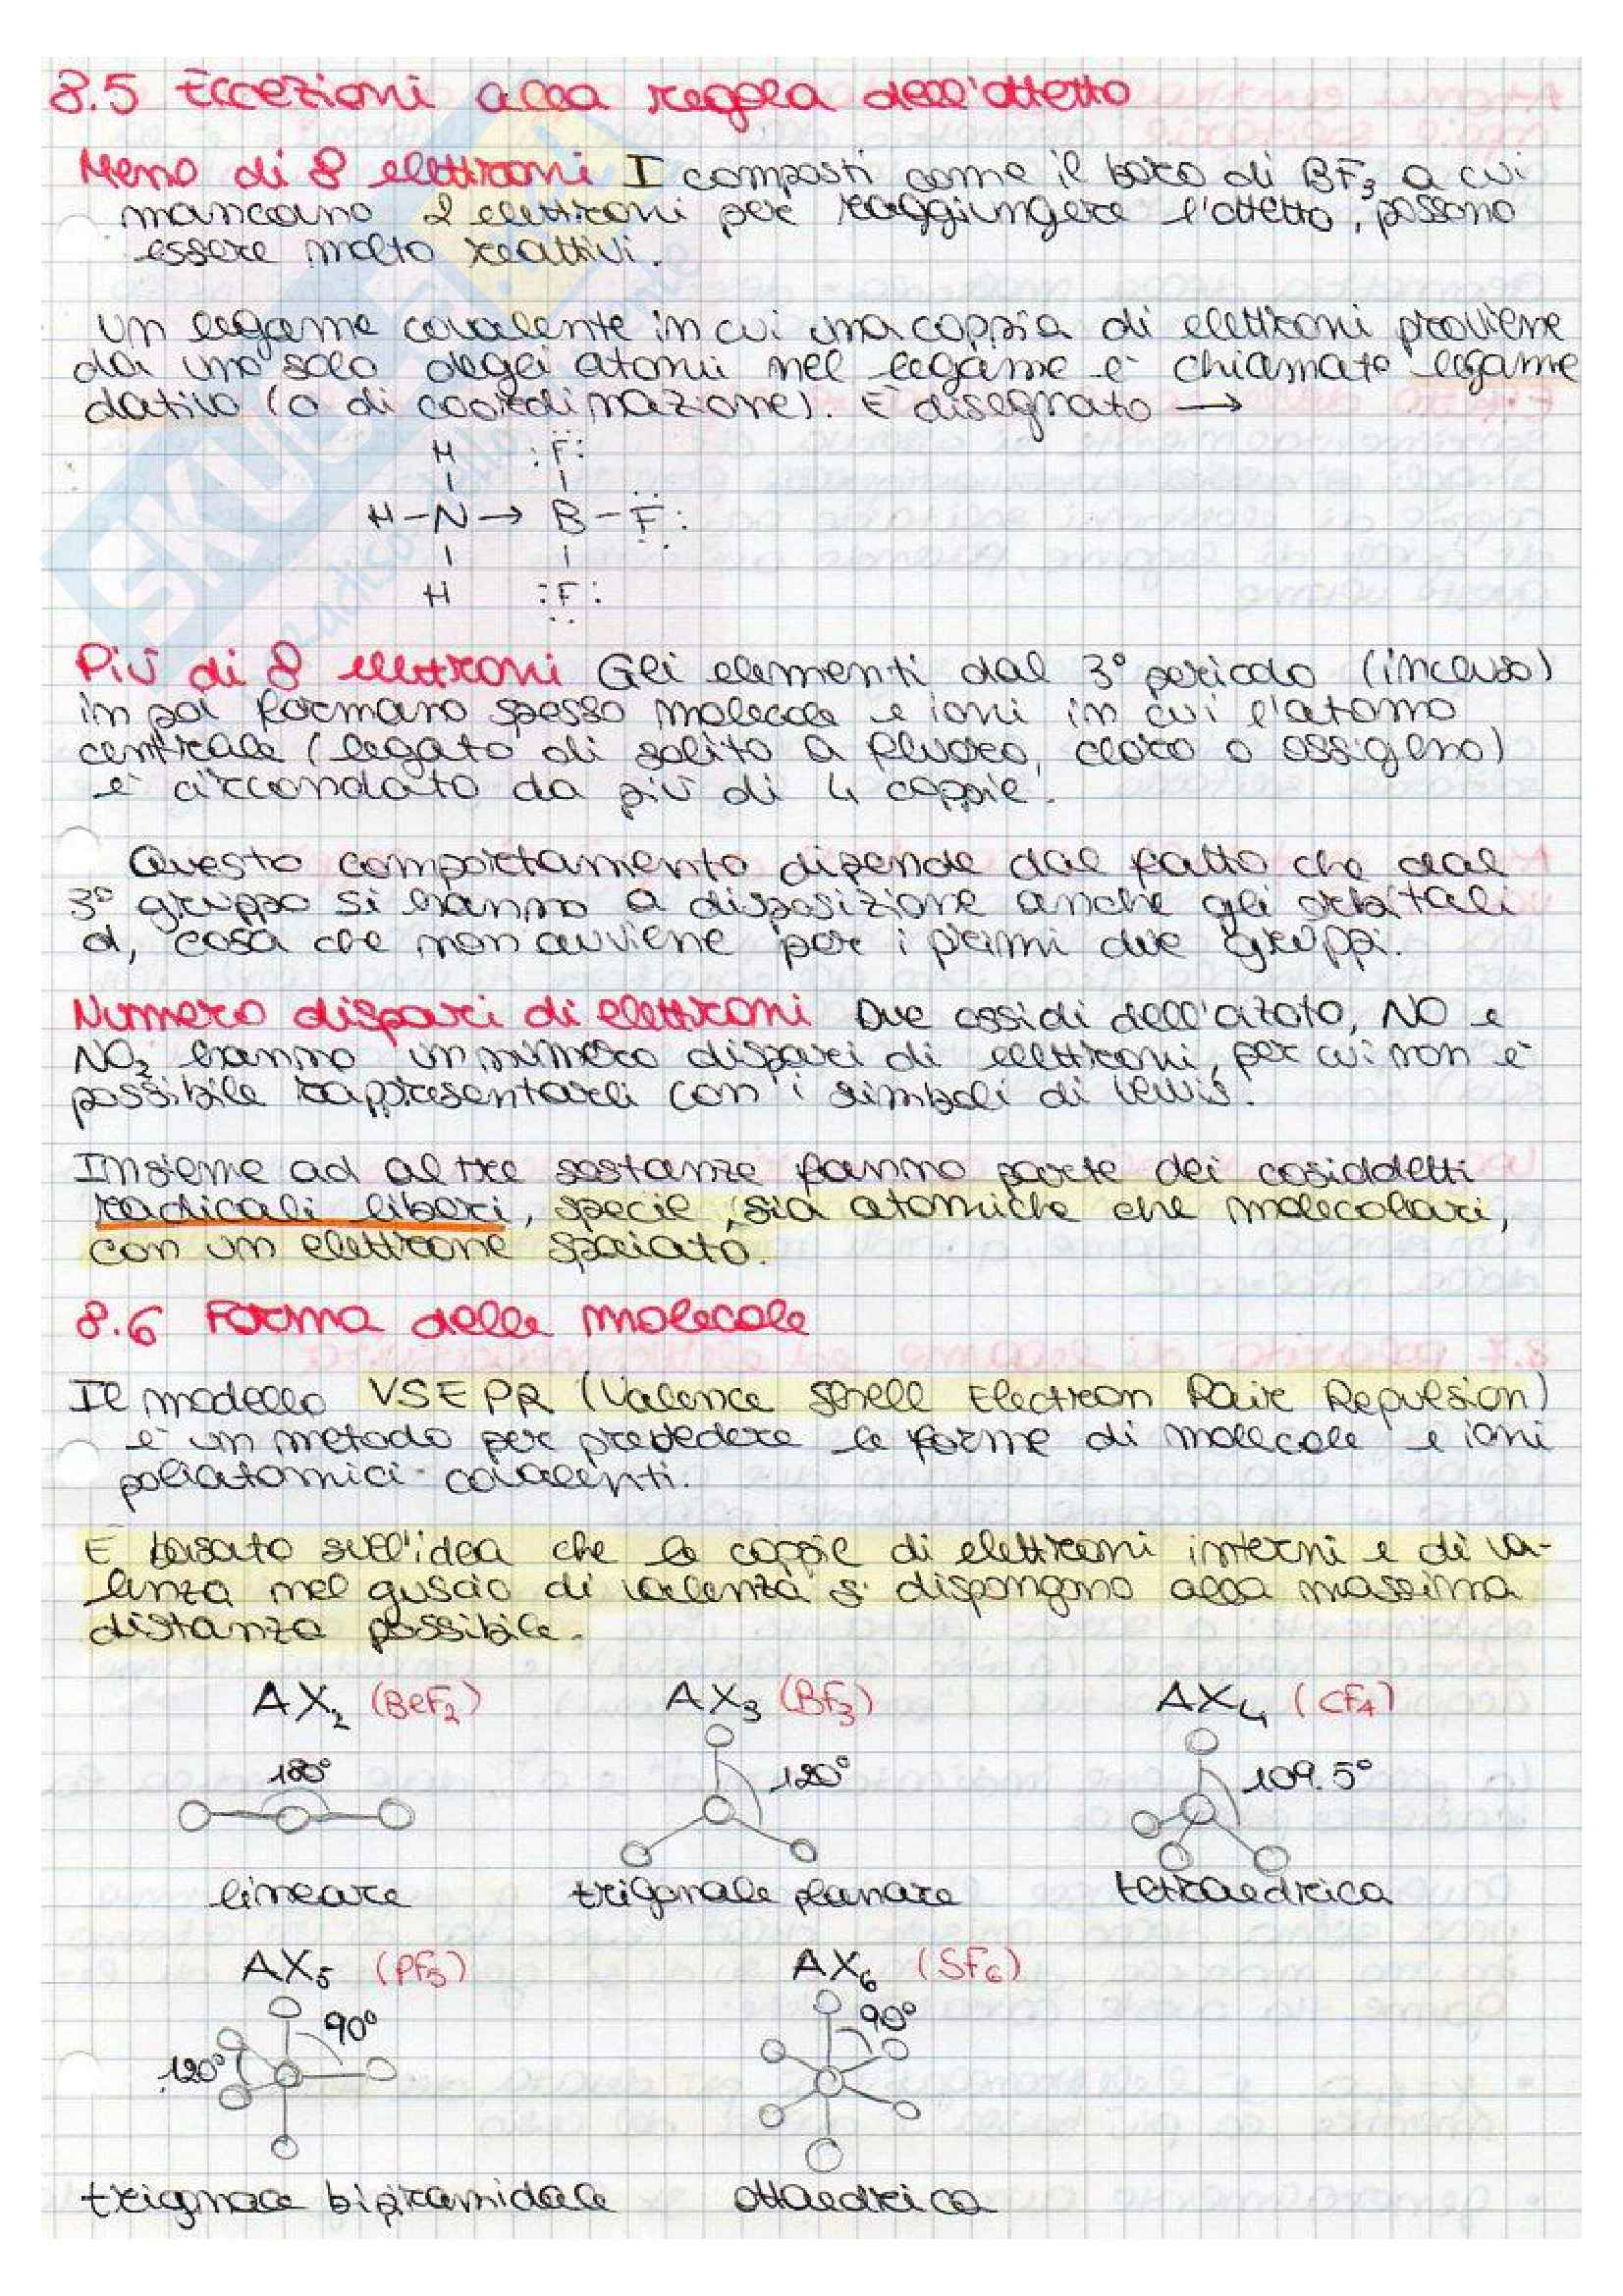 8.5 Eccezioni alla regola dell'ottetto
Meno di 8 elettroni I composti come il boro di BF3 a cui
mancano 2 elettroni per raggiungere l'ottetto, possono
essere molto reattivi.
Un legame covalente in cui una coppia di elettroni proviene
da uno solo degli atomi nel legame è chiamato legame
dativo (o di coordinazione). È disegnato →
H :F:
H–N→B–F:
H :F:
Più di 8 elettroni Gli elementi dal 3° periodo (incluso)
in poi formano spesso molecole e ioni in cui l'atomo
centrale (legato di solito a fluoro, cloro o ossigeno)
è circondato da più di 4 coppie.
Questo comportamento dipende dal fatto che dal
3° gruppo si hanno a disposizione anche gli orbitali
d, cosa che non avviene per i primi due gruppi.
Numero dispari di elettroni Due ossidi dell'azoto, NO e
NO2 hanno un numero dispari di elettroni, per cui non è
possibile rappresentarli con i simboli di Lewis.
Insieme ad altre sostanze fanno parte dei cosiddetti
radicali liberi, specie, sia atomiche che molecolari,
con un elettrone spaiato.
8.6 Forma delle molecole
Il modello VSEPR (Valence Shell Electron Pair Repulsion)
è un metodo per prevedere le forme di molecole e ioni
poliatomici covalenti.
È basato sull'idea che le coppie di elettroni interni e di va-
lenza nel guscio di valenza si dispongono alla massima
distanza possibile.
AX2 (BeF2) AX3 (BF3) AX4 (CF4)
180° 120° 109.5°
lineare trigonale planare tetraedrica
AX5 (PF5) AX6 (SF6)
90° 90°
120°
trignale bipiramidale ottaedrica
SKUOLA